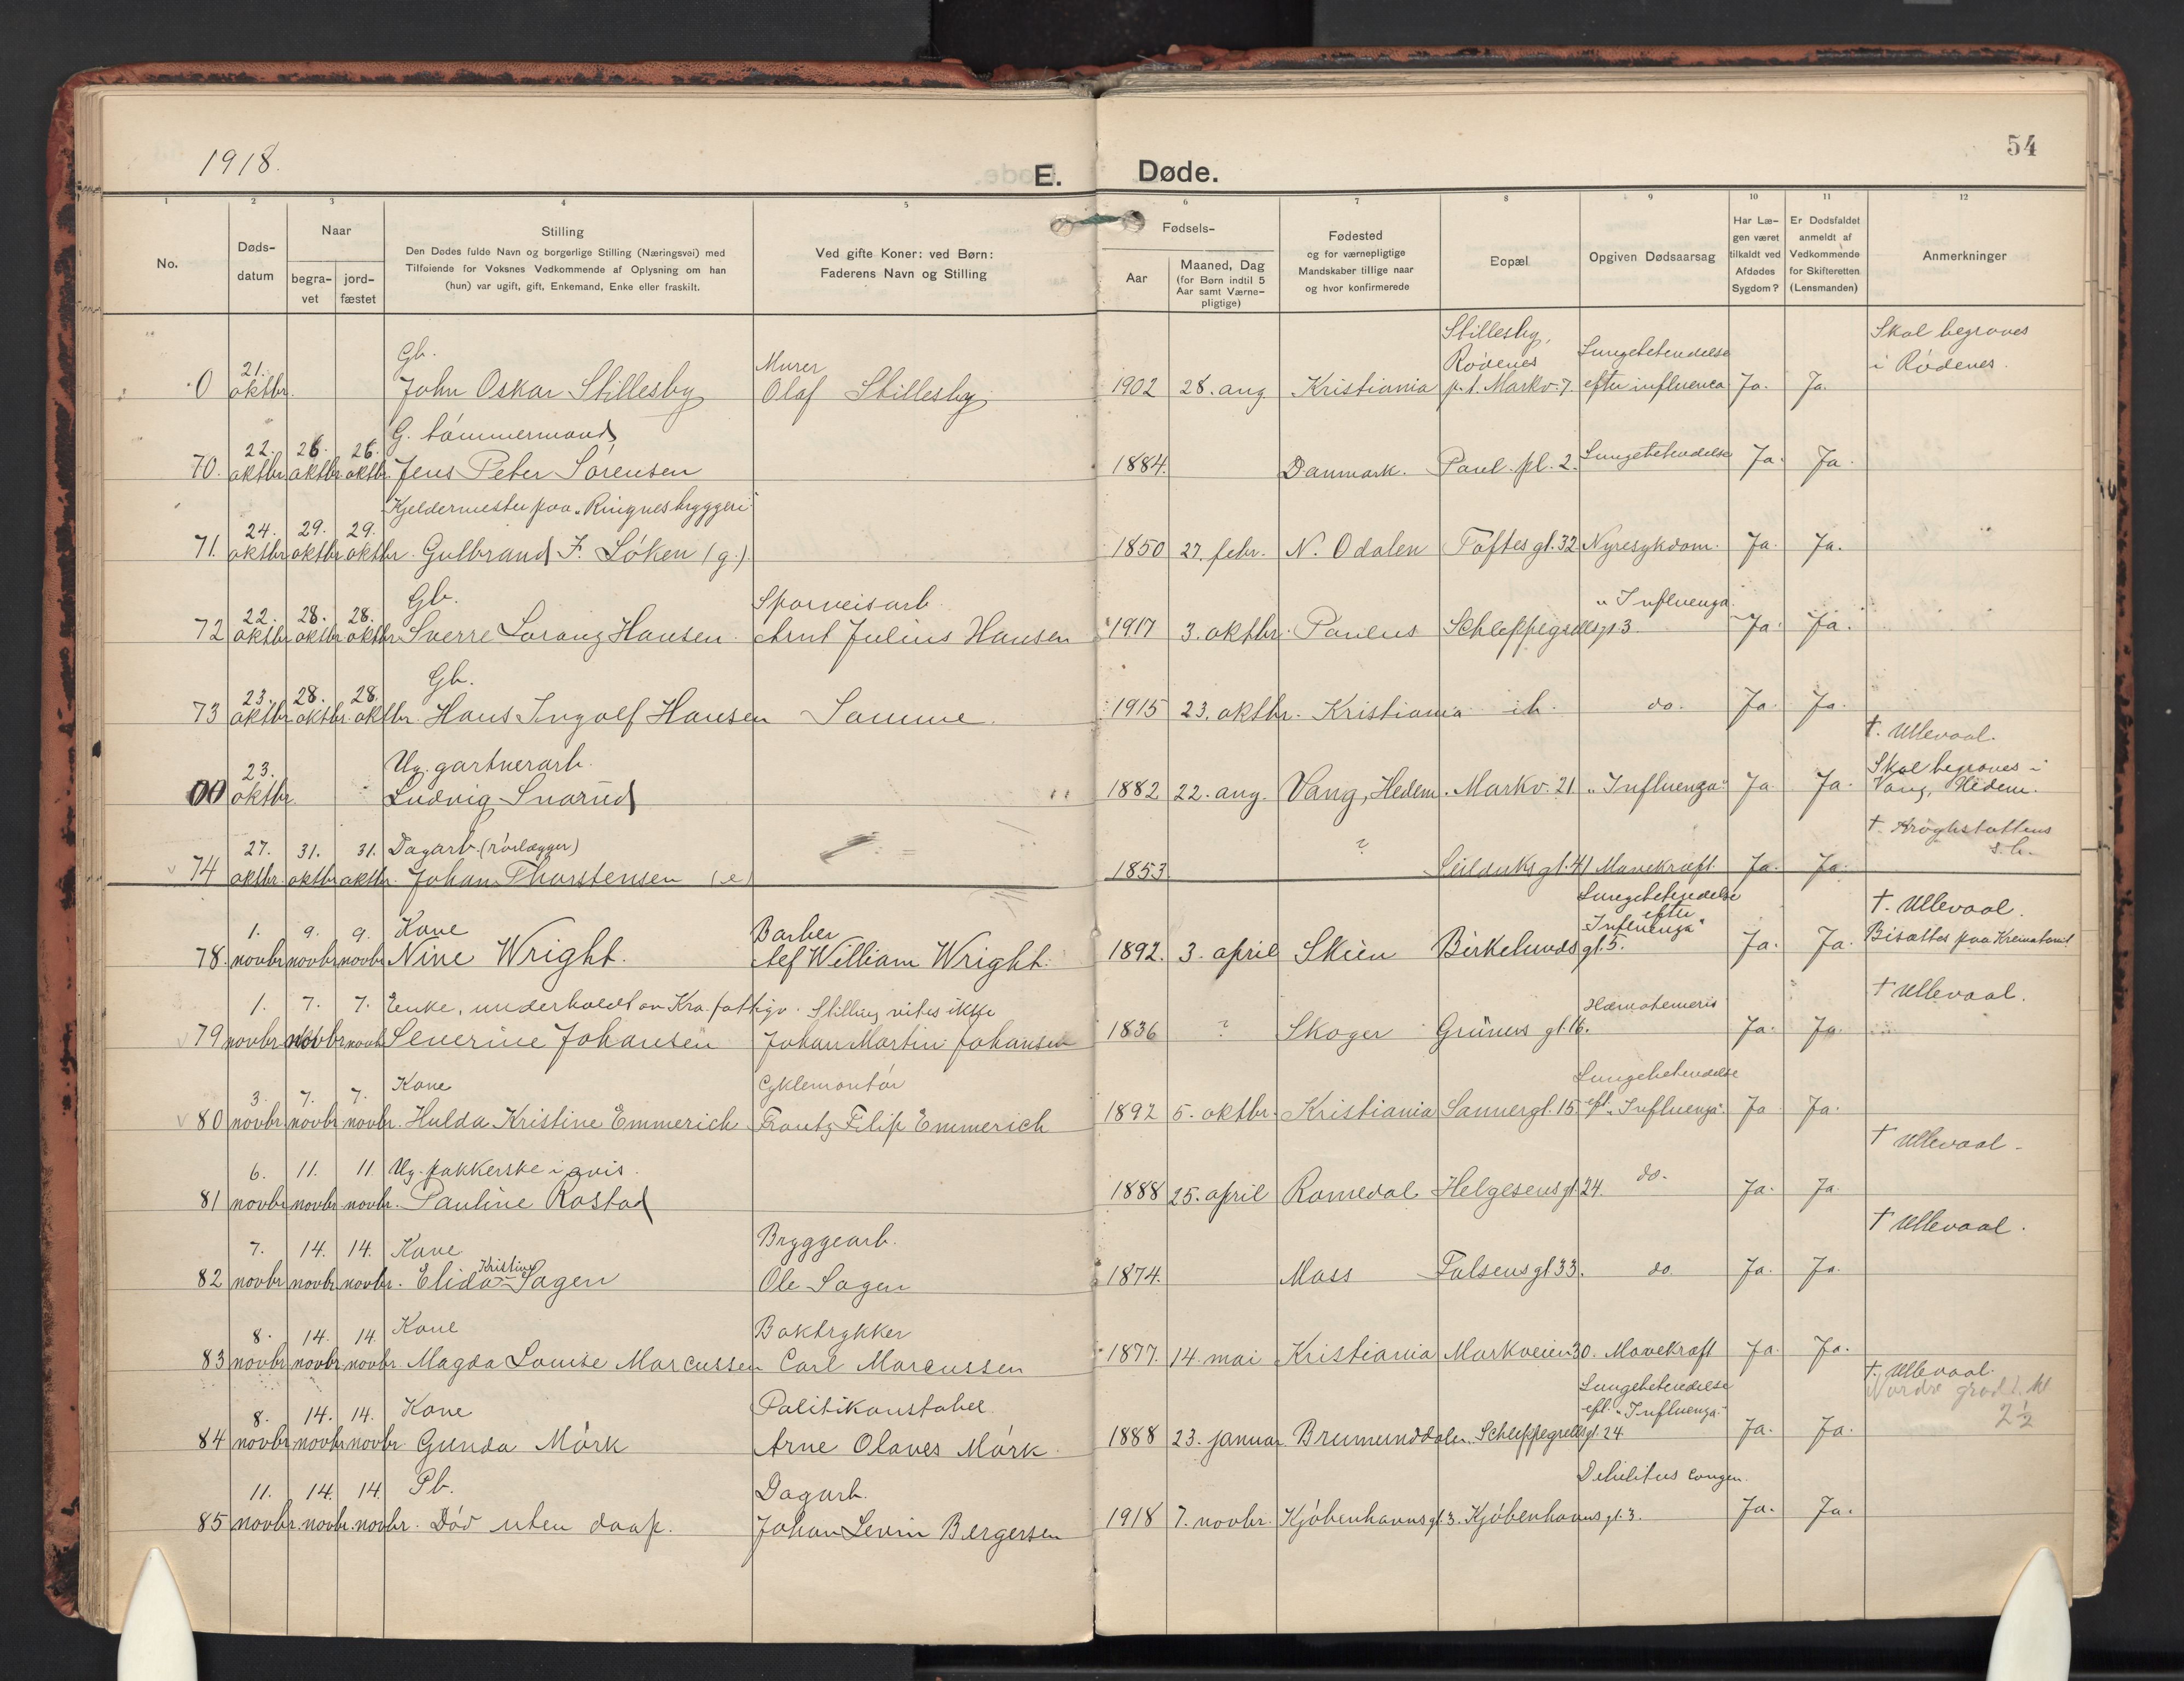 1918.
E. Døde.
54
1 2 3 4 5 6 7 8 9 10 11 12
No.
Døds-
datum
Naar
begra-
vet
jord-
fæstet
Stilling
Den Dødes fulde Navn og borgerlige Stilling (Næringsvei) med
Tilføiende for Voksnes Vedkommende af Oplysning om han
(hun) var ugift, gift, Enkemand, Enke eller fraskilt.
Ved gifte Koner: ved Børn:
Faderens Navn og Stilling
Fødsels-
Aar
Maaned, Dag
(for Børn indtil 5
Aar samt Værne-
pligtige)
Fødested
og for værnepligtige
Mandskaber tillige naar
og hvor konfirmerede
Bopæl
Opgiven Dødsaarsag
Har Læ-
gen været
tilkaldt ved
Afdødes
Sygdom?
Er Dødsfaldet
anmeldt af
Vedkommende
for Skifteretten
(Lensmanden)
Anmerkninger
21. Gb. Murer Stillesby, Rödenes Lungebetendelse Skal begraves
0 oktbr. John Oskar Stillesby Olaf Stillesby 1902 28. aug Kristiania p.t. Markv. 7. efter influenca Ja. Ja. i Rödenes.
22. 26. 26. G. tömmermand
70. oktbr. oktbr. oktbr. Jens Peter Sörensen 1884. Danmark. Paul. pl. 2. Lungebetendelse Ja. Ja.
24. 29. 29. Kjeldermester paa "Ringnes bryggeri"
71. oktbr. oktbr. oktbr. Gulbrand F. Löken (g.) 1850 27. febr. N. Odalen Toftes gt. 32 Nyresykdom. Ja. Ja.
22. 28. 28. Gb. Sporveisarb. "Influenza"
72 oktbr. oktbr. oktbr. Sverre Lorang Hansen. Arnt Julius Hansen 1917 3. oktbr. Paulus Schleppegrellsgt 3. Ja. Ja.
23. 28. 28. Gb.
73 oktbr. oktbr. oktbr. Hans Ingolf Hansen Samme. 1915 23. oktbr. Kristiania ib. do. Ja. Ja.
23. Ug. gartnerarb. †. Ullevaal. Skal begraves i
00 oktbr. Ludvig Snarud 1882 22. aug. Vang, Hedem. Markv. 21 "Influenza" Ja Ja. Vang, Hedem.
27. 31. 31. Dagarb. (rörlægger) † Kroghstøttens s.h.
74 oktbr. oktbr. oktbr. Johan Thorstensen (e) 1853 ? Seilduks gt. 41 Mavekræft. Ja. Ja.
1. 9. 9. Kone Barber Lungebetendelse efter †. Ullevaal.
78. novbr. novbr. novbr. Nine Wright. Alf William Wright. 1892. 3. april Skien Birkelunds gt. 5. "Influenza" Ja. Ja. Bisattes paa Krematoriet
1. 7. 7. Enke, underholdt av Kra. fattigv. Stilling vites ikke Hæmatemesis † Ullevaal.
79 novbr. novbr. novbr. Severine Johansen Johan Martin Johansen 1836 ? Skoger Grüners gt. 16. Ja. Ja.
3. 7. 7. Kone Cyklemontör Lungebetendelse
80 novbr. novbr. novbr. Hulda Kristine Emmerich Frantz Filip Emmerich 1892 5. oktbr. Kristiania Sannergt. 15. eft. "Influenza". Ja Ja.
6. 11. 11. Ug. pakkerske i avis. † Ullevaal.
81 novbr. novbr. novbr. Pauline Rostad 1888 25. april Romedal Helgesens gt. 24. do. Ja. Ja
7. 14. 14. Kone Kristine Bryggearb. † Ullevaal.
82 novbr. novbr. novbr. Elida Sagen Ole Sagen 1874. Moss Falsens gt 33. do. Ja. Ja.
8. 14. 14. Kone Boktrykker
83 novbr. novbr. novbr. Magda Louise Marcussen Carl Marcussen 1877. 14. mai Kristiania Markveien 30. Mavekræft Ja. Ja.
8. 14. 14. Kone Politikonstabel Lungebetendelse eft. "Influenza" †. Ullevaal. Nordre gravl. kl 2½
84 novbr. novbr. novbr. Gunda Mörk Arne Olaves Mörk. 1888 23. januar Brumunddalen. Schleppegrellsgt. 24. Ja. Ja.
11. 14. 14. Pb. Dagarb. Debilitas congen.
85 novbr. novbr. novbr. Död uten daap. Johan Levin Bergersen 1918 7. novbr. Kjöbenhavnsgt. 3. Kjöbenhavnsgt. 3. Ja. Ja.